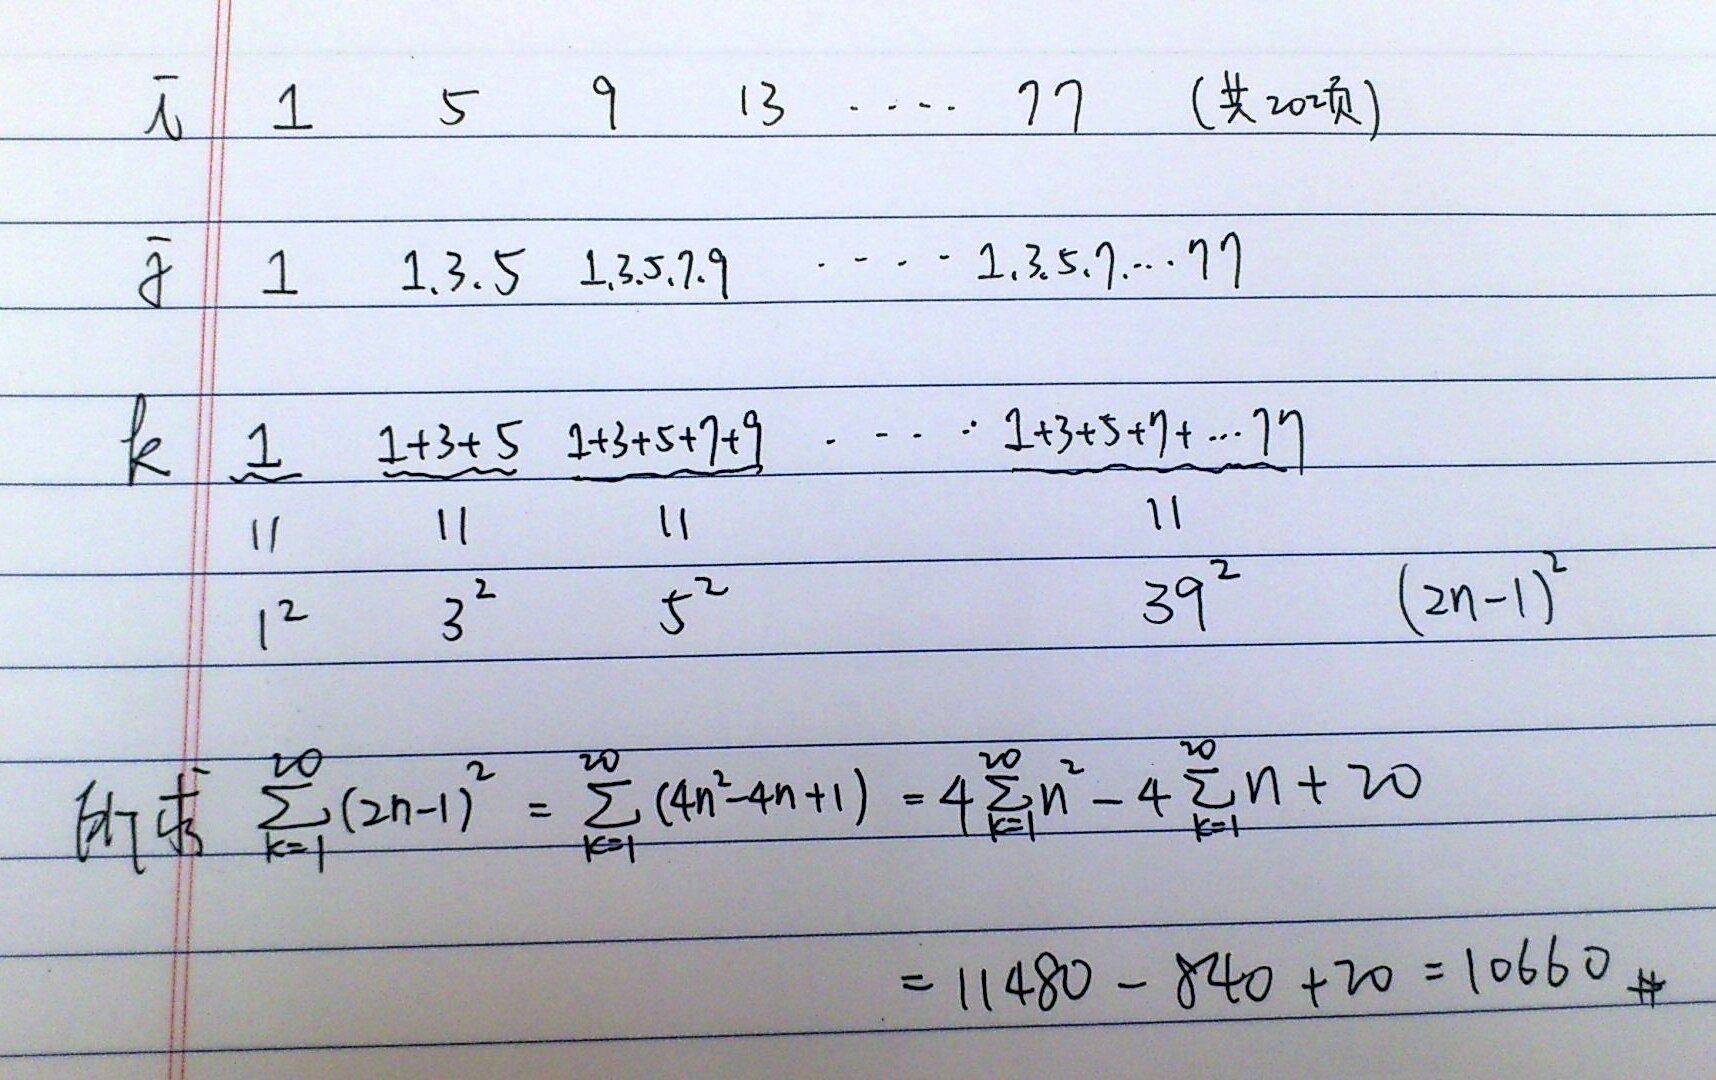 i 1 5 9 13 ····· 77 (共20項)
j 1 1.3.5 1.3.5.7.9 ····· 1.3.5.7.···77
k 1 1+3+5 1+3+5+7+9 ····· 1+3+5+7+···77
11 11 11 11
1² 3² 5² 39² (2n-1)²
所求 ∑_{k=1}^{20}(2n-1)² = ∑_{k=1}^{20}(4n²-4n+1) = 4∑_{k=1}^{20}n² - 4∑_{k=1}^{20}n + 20
= 11480 - 840 + 20 = 10660 #